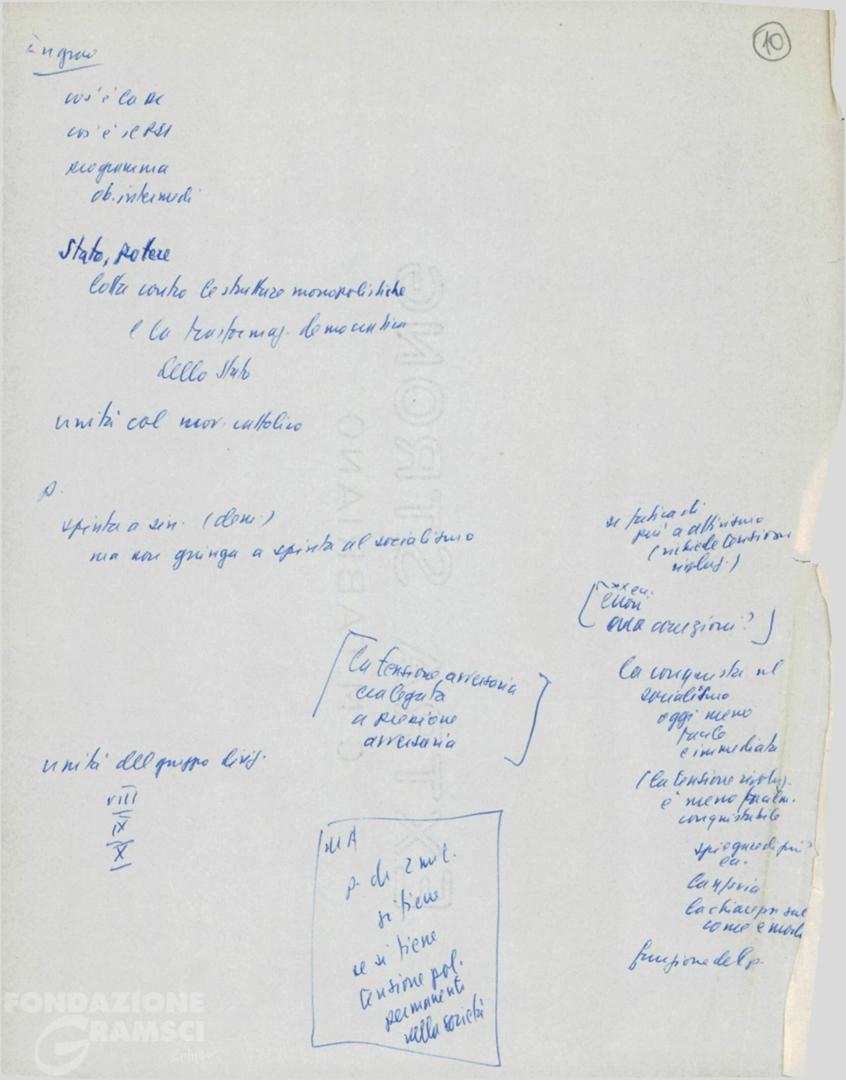 10
Ingrao
cos'è la DC
cos'è il PSI
programma
ob. intermedi
Stato, potere
lotta contro le strutture monopolistiche
e la trasformaz. democratica
dello Stato
unità col mov. cattolico
p.
spinta a sin. (dem.)
ma non giunga a spinta al socialismo
se tratta di
più attivismo
(richiede tensione
rivoluz.)
[XX cn.
errori
correzioni?]
[la tensione avversaria
era legata
a
avversaria]
la conquista del
socialismo
oggi meno
facile
e immediata
(la tensione rivoluz.
è meno facilm.
conquistabile
spiegare di più
la
la chiarezza sul
come e
funzione del p.
unità del gruppo dirig.
VIII
IX
X
MA
p. di 2 mil.
si tiene
se si tiene
tensione pol.
permanente
nella società
EXTRA STRONG
C M FABRIANO
FONDAZIONE
GRAMSCI